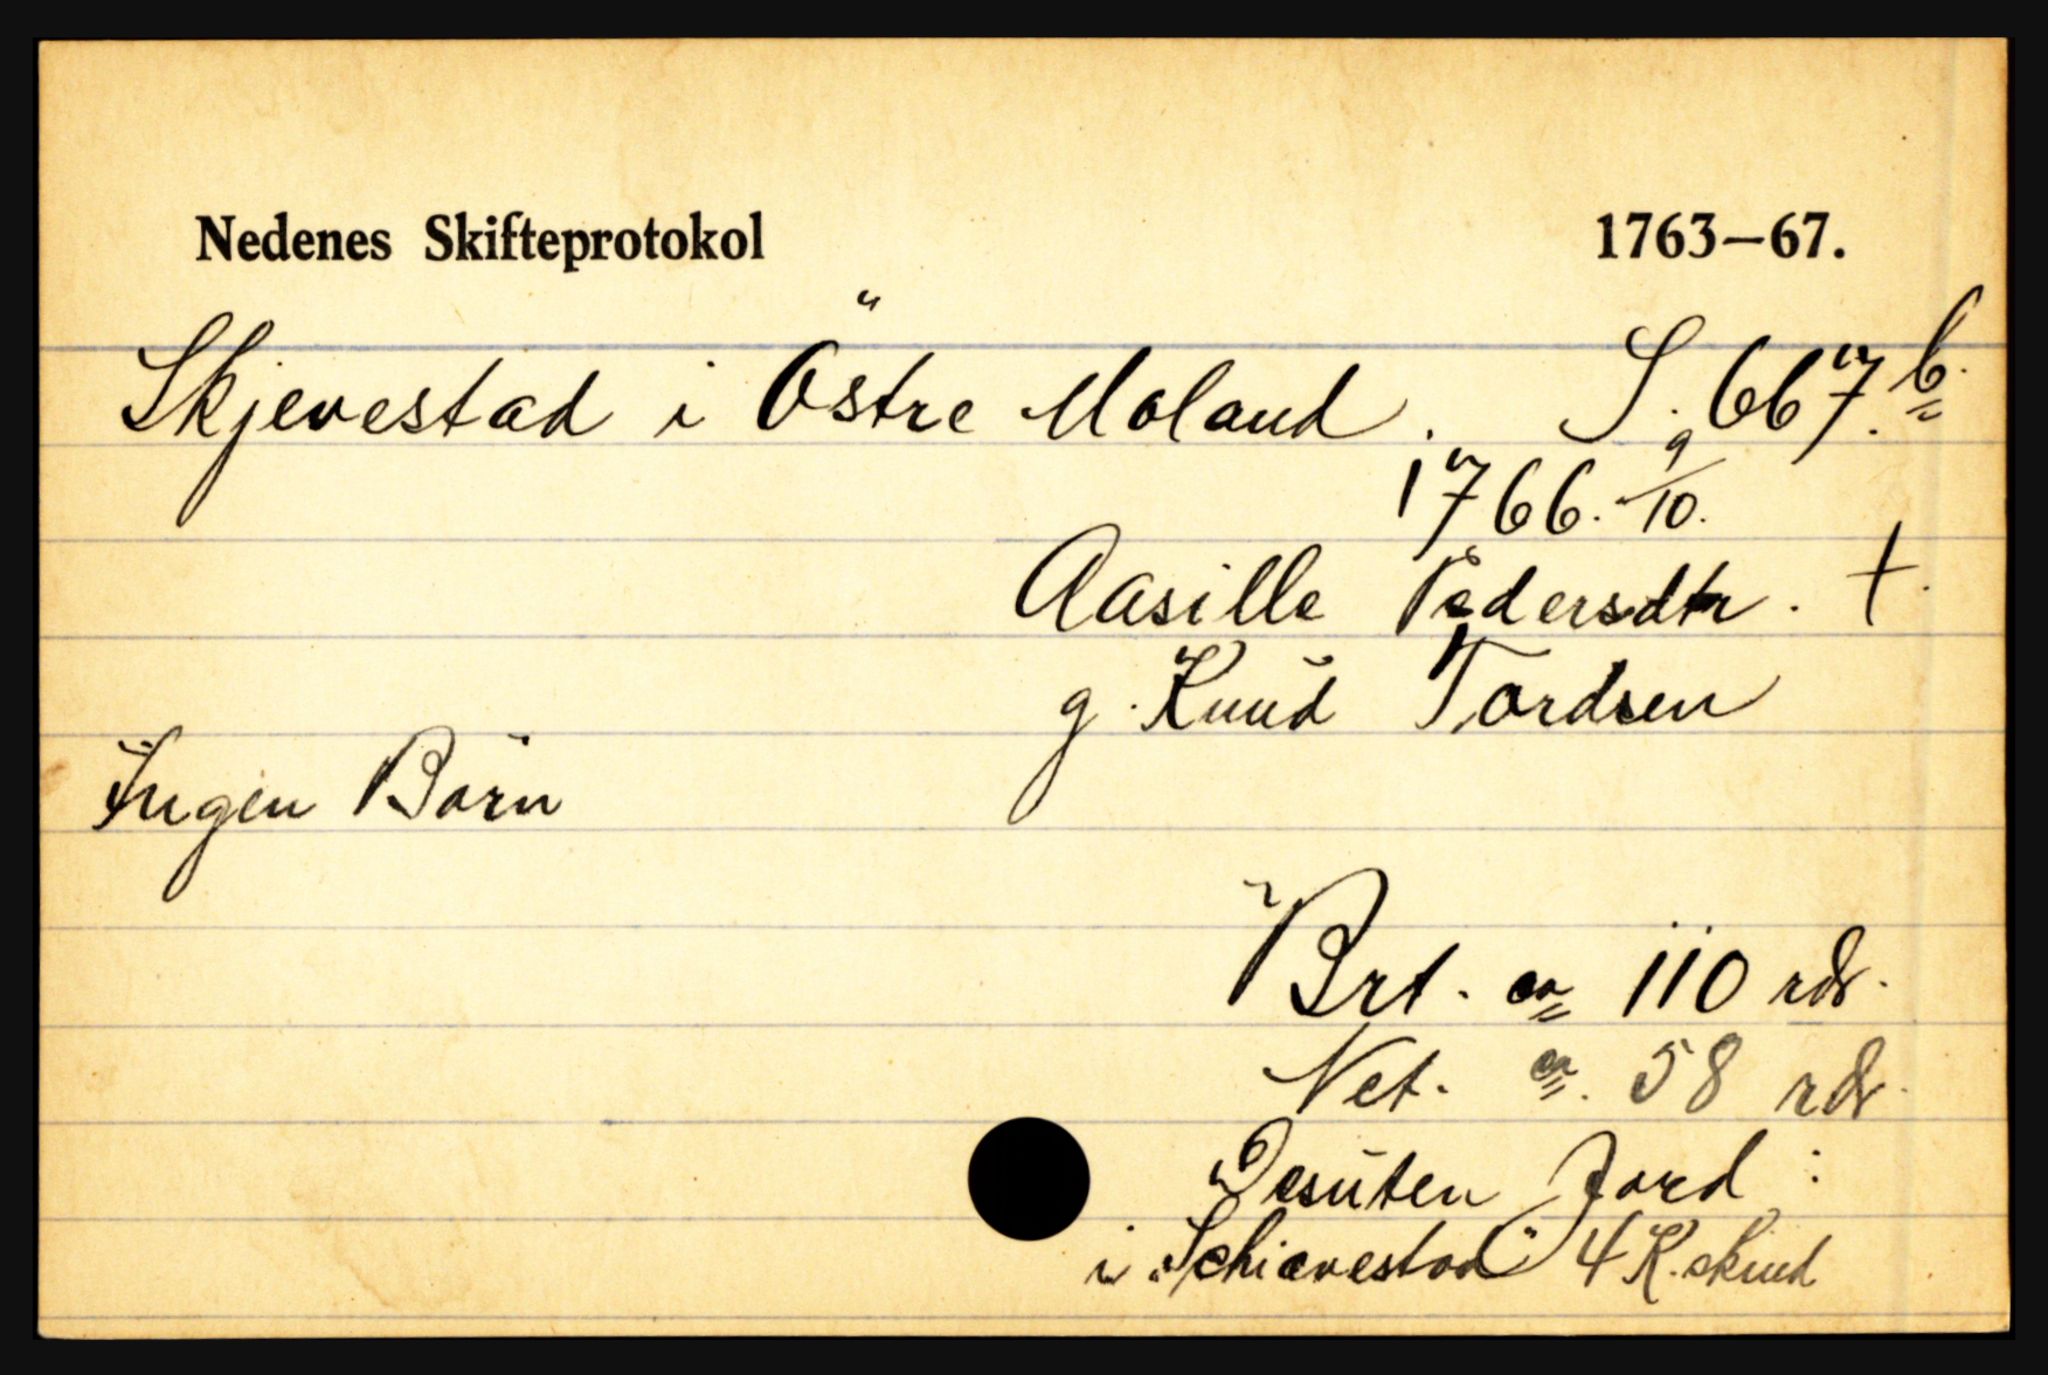 Nedenes Skifteprotokol 1763—67.
Skjevestad i Östre Moland. S. 667.b.
1766. 9/10.
Aasille Pedersdtr. †.
g. Knud Tordsen
Ingen Börn
Brt. ca 110 rdr.
Net. ca. 58 rdr.
Desuten Jord:
i "Schiævestad" 4 K. skind